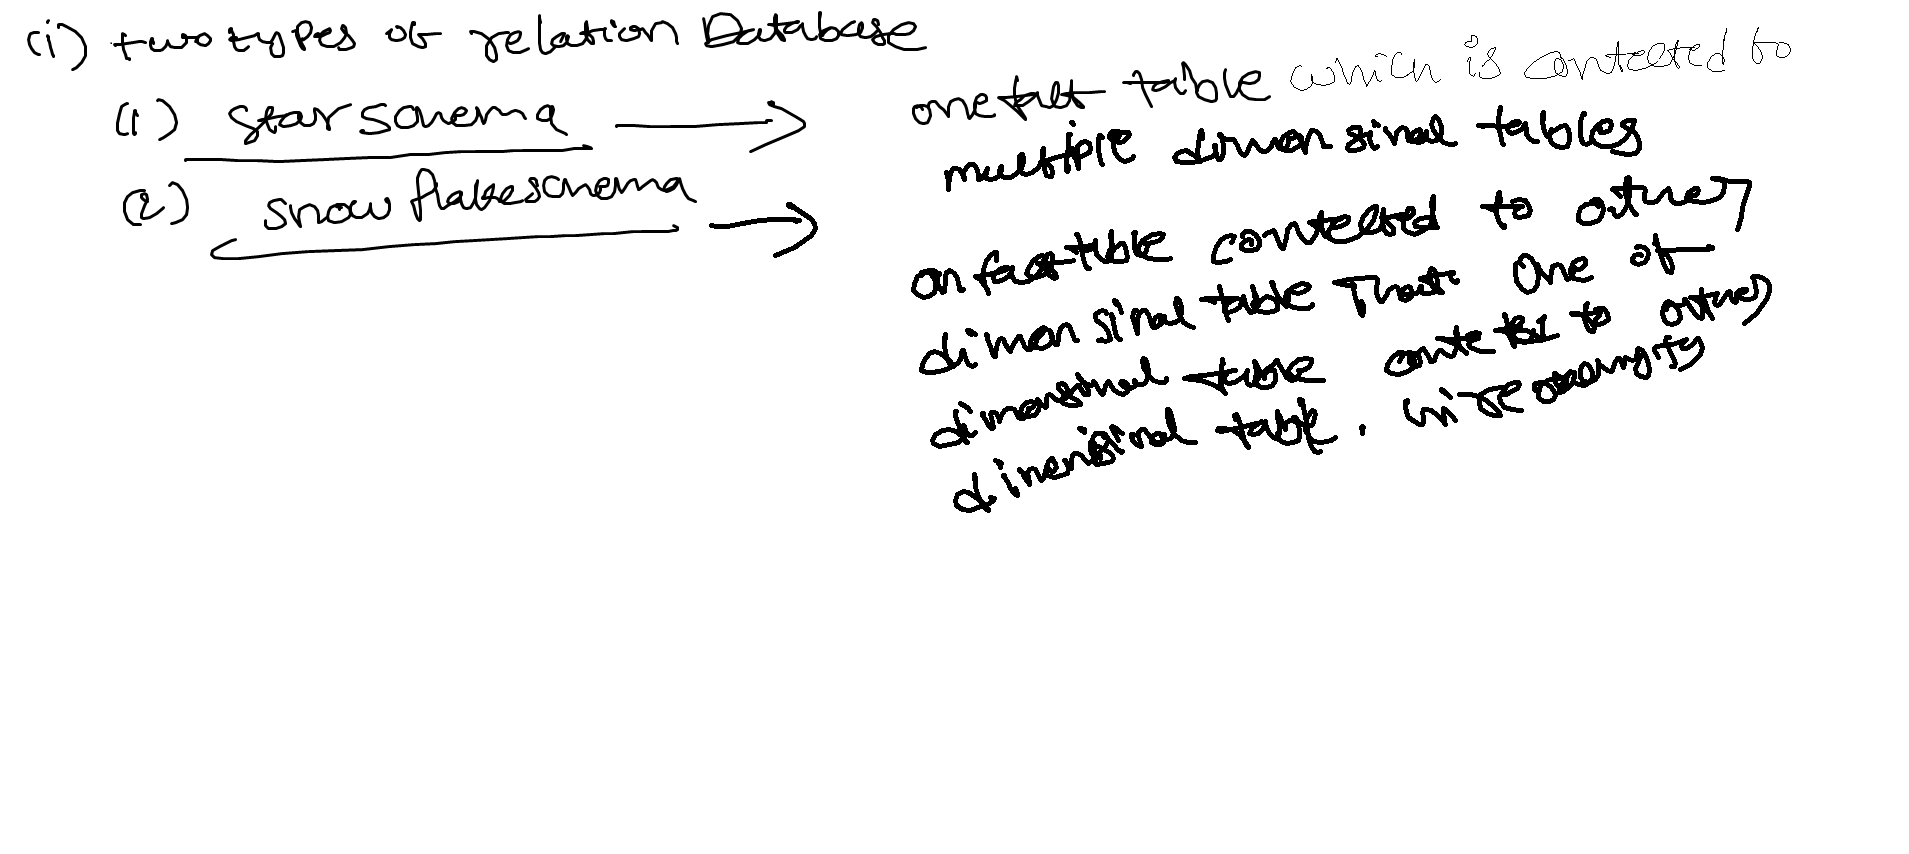 (i) two types of relation Database
(1) star schema
one fact table which is contected to
multiple dimensinal tables
(2) snow flake schema
on fact table contected to other
dimensinal table That one of
dimensinal table to other
dimensinal table.